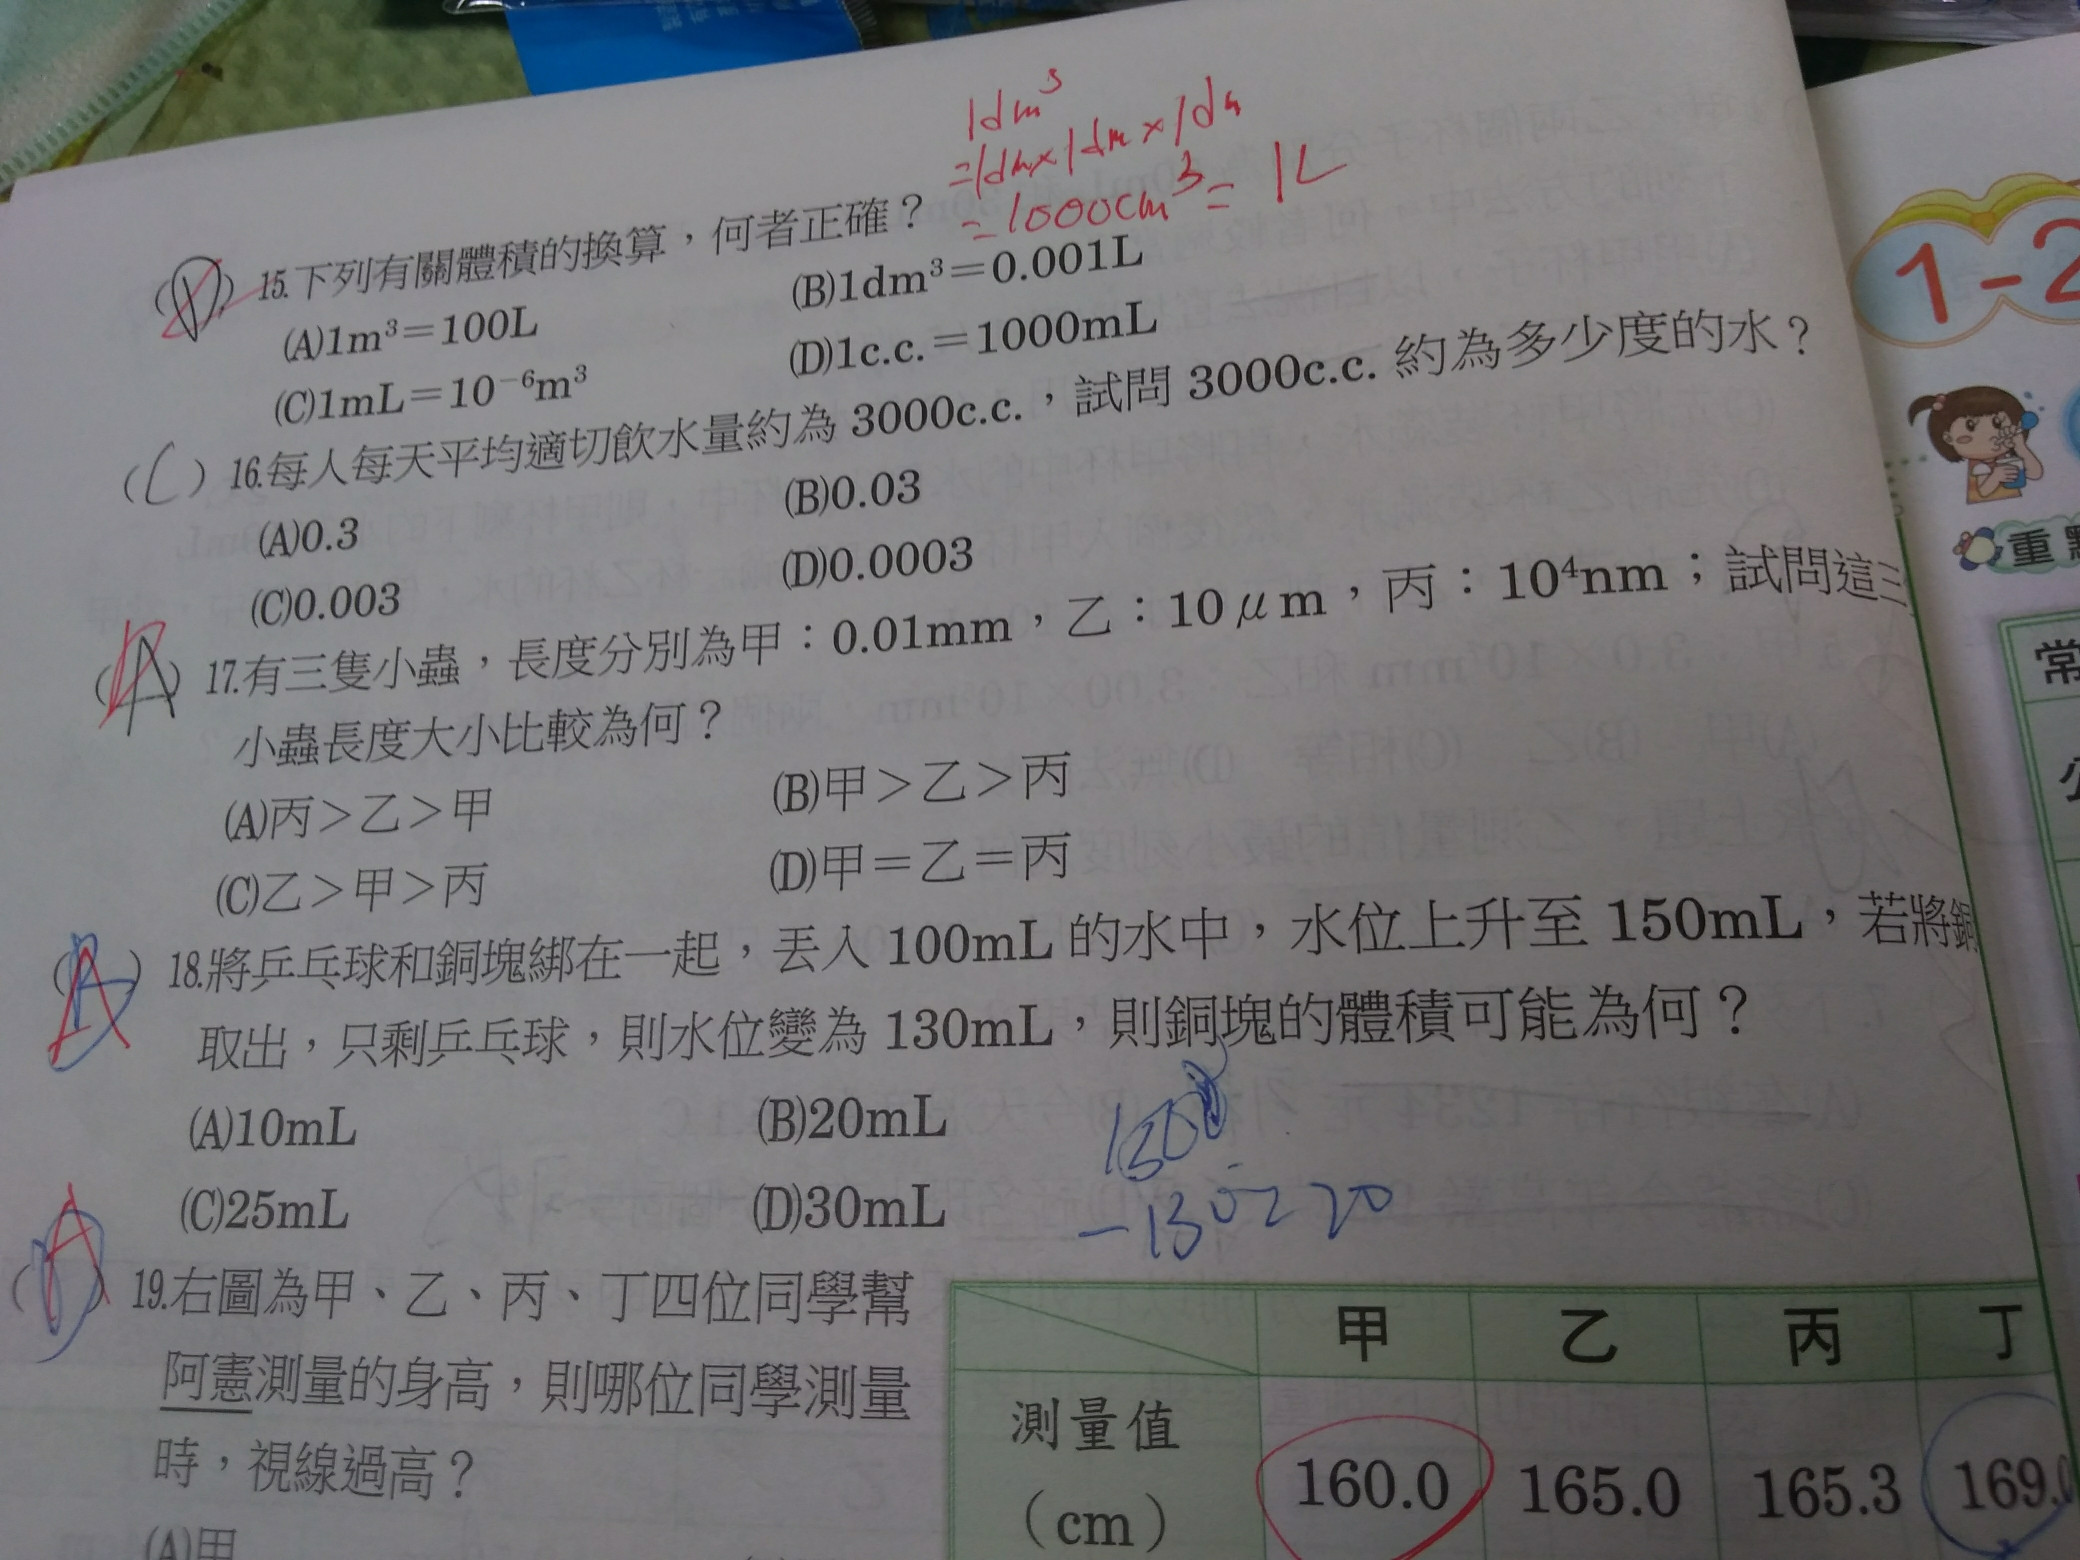 1dm³
=1dm×1dm×1dm
=1000cm³=1L
15.下列有關體積的換算，何者正確？
(A)1m³＝100L
(B)1dm³＝0.001L
(C)1mL＝10⁻⁶m³
(D)1c.c.＝1000mL
(C) 16.每人每天平均適切飲水量約為 3000c.c.，試問 3000c.c. 約為多少度的水？
(A)0.3
(B)0.03
(C)0.003
(D)0.0003
17.有三隻小蟲，長度分別為甲：0.01mm，乙：10μm，丙：10⁴nm；試問這三
小蟲長度大小比較為何？
(A)丙＞乙＞甲
(B)甲＞乙＞丙
(C)乙＞甲＞丙
(D)甲＝乙＝丙
(A) 18.將乒乓球和銅塊綁在一起，丟入 100mL 的水中，水位上升至 150mL，若將銅
取出，只剩乒乓球，則水位變為 130mL，則銅塊的體積可能為何？
(A)10mL
(B)20mL
(C)25mL
(D)30mL
-130=20
(A) 19.右圖為甲、乙、丙、丁四位同學幫
阿憲測量的身高，則哪位同學測量
時，視線過高？
(A)甲
甲 乙 丙 丁
測量值
(cm)
160.0 165.0 165.3 169.0
1-2
重點
常